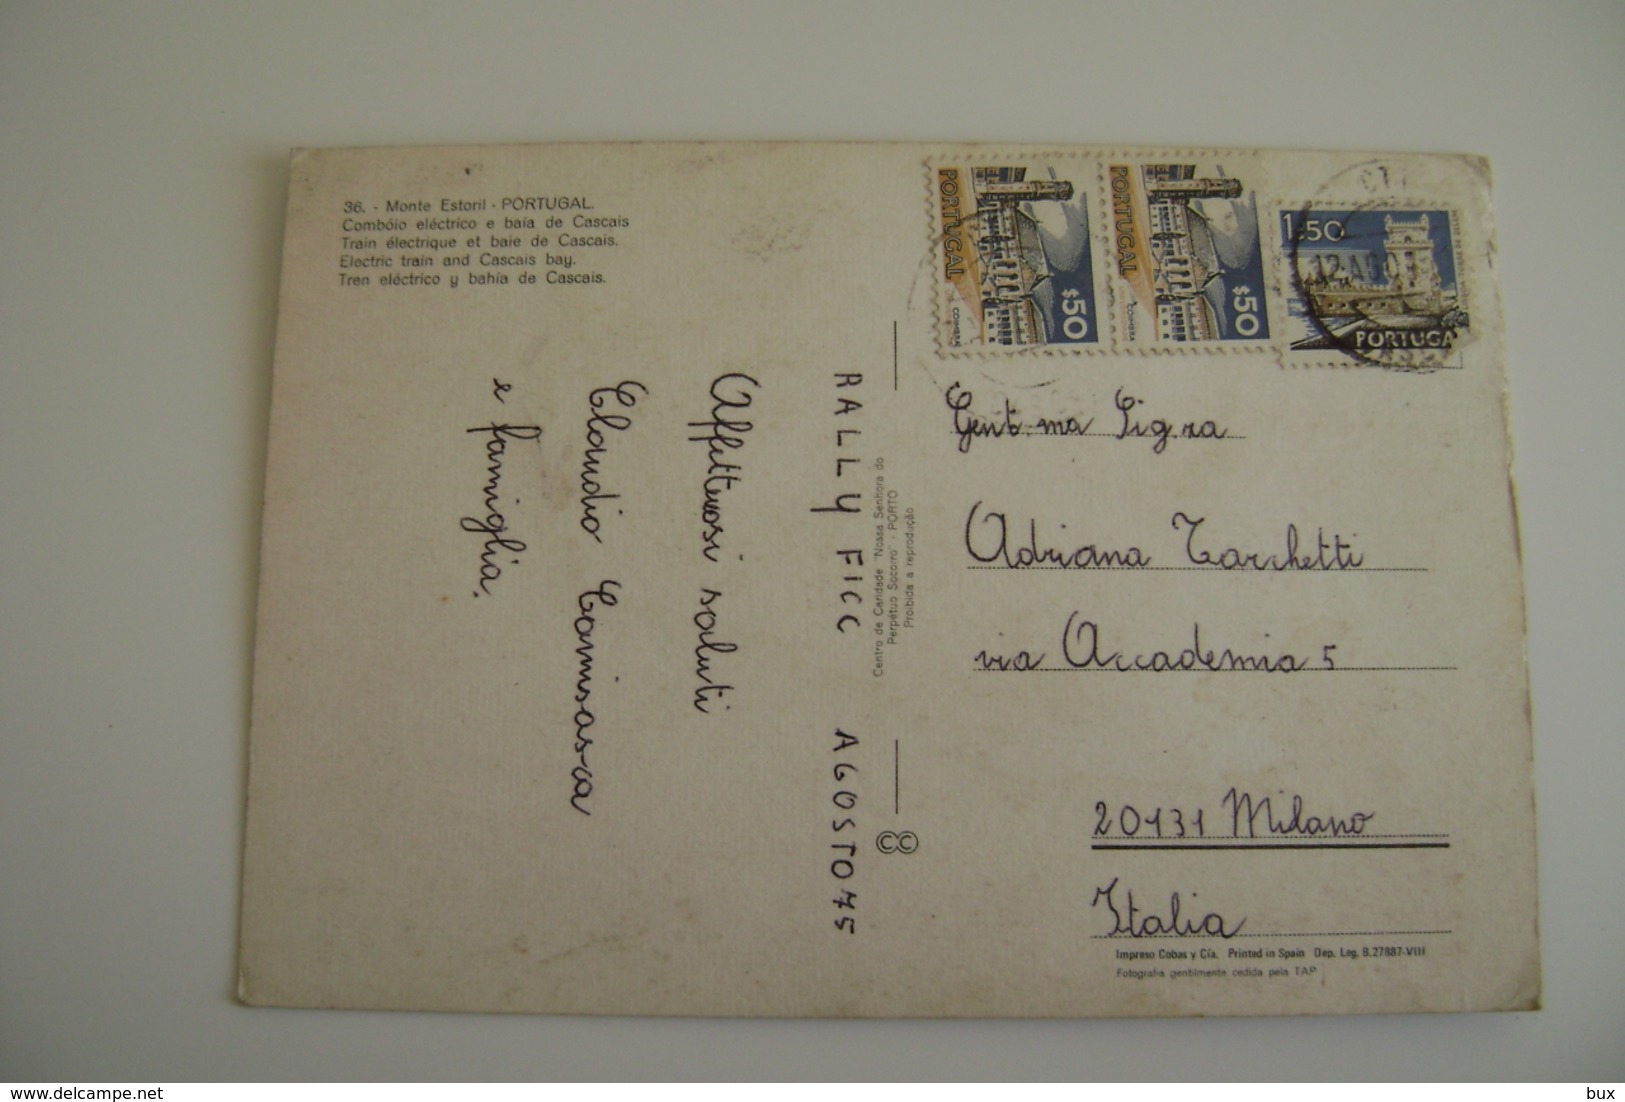 36. - Monte Estoril - PORTUGAL.
Combóio eléctrico e baía de Cascais
Train électrique et baie de Cascais.
Electric train and Cascais bay.
Tren eléctrico y bahía de Cascais.
RALLY FICC AGOSTO 75
Affettuosi saluti
Claudio
e famiglia.
Centro de Caridade "Nossa Senhora do
Perpétuo Socorro" - PORTO
Proibida a reprodução
CC
PORTUGAL
$50
COIMBRA
PORTUGAL
$50
COIMBRA
1.50
PORTUGAL
12.AGO
Gent.ma Sig.ra
Adriana Tarchetti
via Accademia 5
20131 Milano
Italia
Impreso Cobas y Cía. Printed in Spain Dep. Leg. B.27887-VIII
Fotografia gentilmente cedida pela TAP
delcampe.net
bux